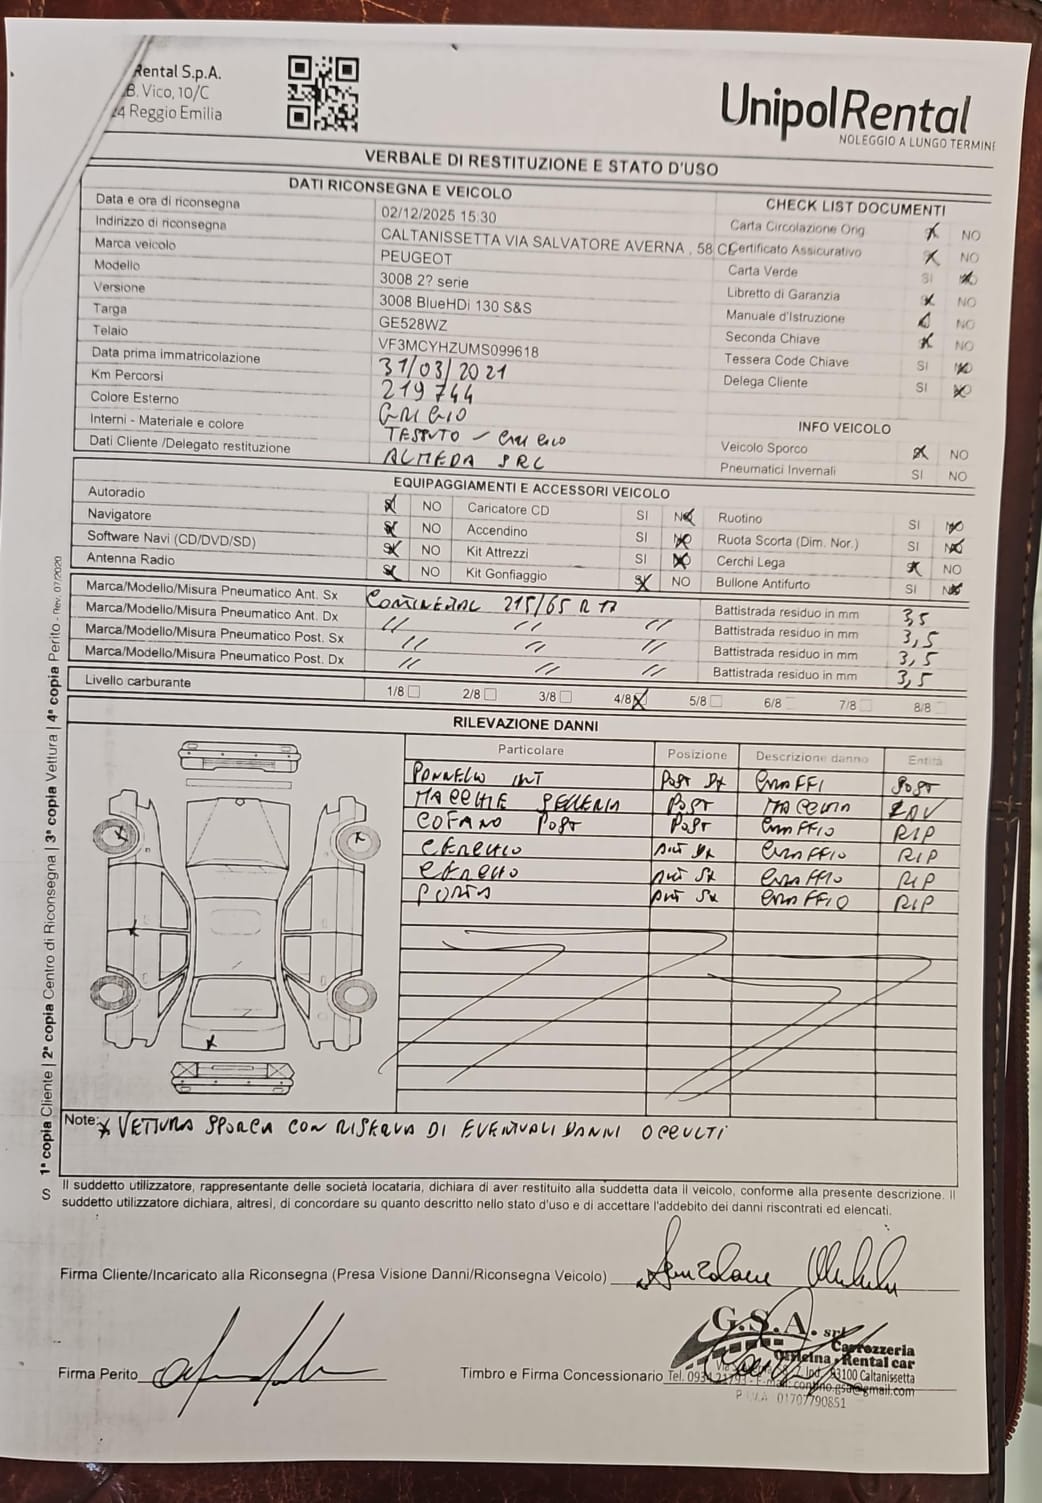 Rental S.p.A.
B. Vico, 10/C
24 Reggio Emilia
UnipolRental
NOLEGGIO A LUNGO TERMINE
VERBALE DI RESTITUZIONE E STATO D'USO
DATI RICONSEGNA E VEICOLO
Data e ora di riconsegna 02/12/2025 15:30
Indirizzo di riconsegna CALTANISSETTA VIA SALVATORE AVERNA , 58 CL
Marca veicolo PEUGEOT
Modello 3008 2? serie
Versione 3008 BlueHDi 130 S&S
Targa GE528WZ
Telaio VF3MCYHZUMS099618
Data prima immatricolazione 31/03/2021
Km Percorsi 219744
Colore Esterno GRIGIO
Interni - Materiale e colore TESSUTO - GRIGIO
Dati Cliente /Delegato restituzione ALMEDA SRL
CHECK LIST DOCUMENTI
Carta Circolazione Orig NO
Certificato Assicurativo NO
Carta Verde SI
Libretto di Garanzia NO
Manuale d'Istruzione NO
Seconda Chiave NO
Tessera Code Chiave SI NO
Delega Cliente SI NO
INFO VEICOLO
Veicolo Sporco NO
Pneumatici Invernali SI NO
EQUIPAGGIAMENTI E ACCESSORI VEICOLO
Autoradio NO Caricatore CD SI NO Ruotino SI NO
Navigatore NO Accendino SI NO Ruota Scorta (Dim. Nor.) SI NO
Software Navi (CD/DVD/SD) NO Kit Attrezzi SI NO Cerchi Lega NO
Antenna Radio NO Kit Gonfiaggio NO Bullone Antifurto SI NO
Marca/Modello/Misura Pneumatico Ant. Sx CONTINENTAL 215/65 R 17 Battistrada residuo in mm 3,5
Marca/Modello/Misura Pneumatico Ant. Dx // // // Battistrada residuo in mm 3,5
Marca/Modello/Misura Pneumatico Post. Sx // // // Battistrada residuo in mm 3,5
Marca/Modello/Misura Pneumatico Post. Dx // // // Battistrada residuo in mm 3,5
Livello carburante 1/8 2/8 3/8 4/8 5/8 6/8 7/8 8/8
RILEVAZIONE DANNI
Particolare Posizione Descrizione danno Entità
PANNELLO INT POST DX GRAFFI SOST
MACCHIE SELLERIA POST MACCHIA LAV
COFANO POST POST GRAFFIO RIP
CERCHIO ANT DX GRAFFIO RIP
CERCHIO ANT SX GRAFFIO RIP
PORTA ANT SX GRAFFIO RIP
Note: X VETTURA SPORCA CON RISERVA DI EVENTUALI DANNI OCCULTI
Il suddetto utilizzatore, rappresentante delle società locataria, dichiara di aver restituito alla suddetta data il veicolo, conforme alla presente descrizione. Il
suddetto utilizzatore dichiara, altresì, di concordare su quanto descritto nello stato d'uso e di accettare l'addebito dei danni riscontrati ed elencati.
Firma Cliente/Incaricato alla Riconsegna (Presa Visione Danni/Riconsegna Veicolo)
Firma Perito
Timbro e Firma Concessionario
G.S.A. srl
Carrozzeria
Officina - Rental car
93100 Caltanissetta
P.IVA 01707790851
S 1ª copia Cliente | 2ª copia Centro di Riconsegna | 3ª copia Vettura | 4ª copia Perito - Rev. 07/2020